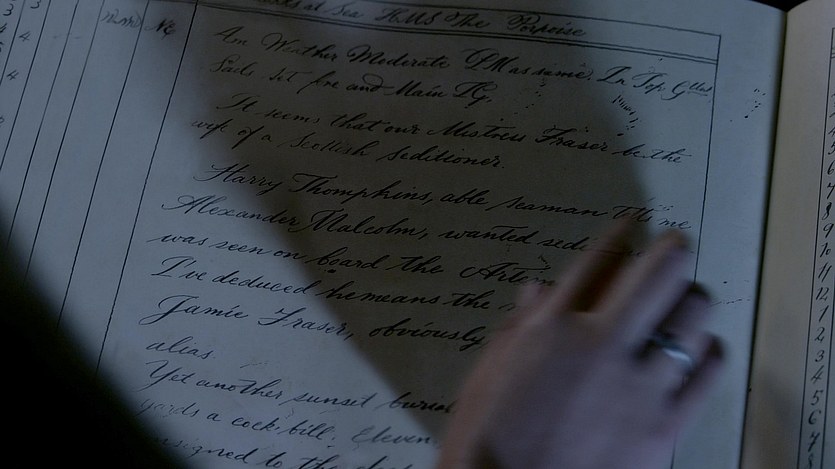 at Sea HMS The Porpoise
Am Wither Moderate PM as same. In Top Gllts
Sails. Set fore and Main
It seems that our Mistress Fraser be the
wife of a Scottish Seditioner.
Harry Thompkins, able seaman tells me
Alexander Malcolm, wanted
was seen on board the
I've deduced he means the
Jamie Fraser, obviously
alias
Yet another sunset
yards a cock bill. Eleven
to the
3
4
4
5
6
7
8
9
10
11
12
1
2
3
4
5
6